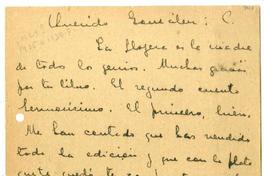 Querido González: C.
La flojera es la madre
de todo los genios. Muchas gracias
por tu libro. El segundo cuento
hermosísimo. El primero, bueno.
Me han contado que has vendido
toda la edición y que con la plata